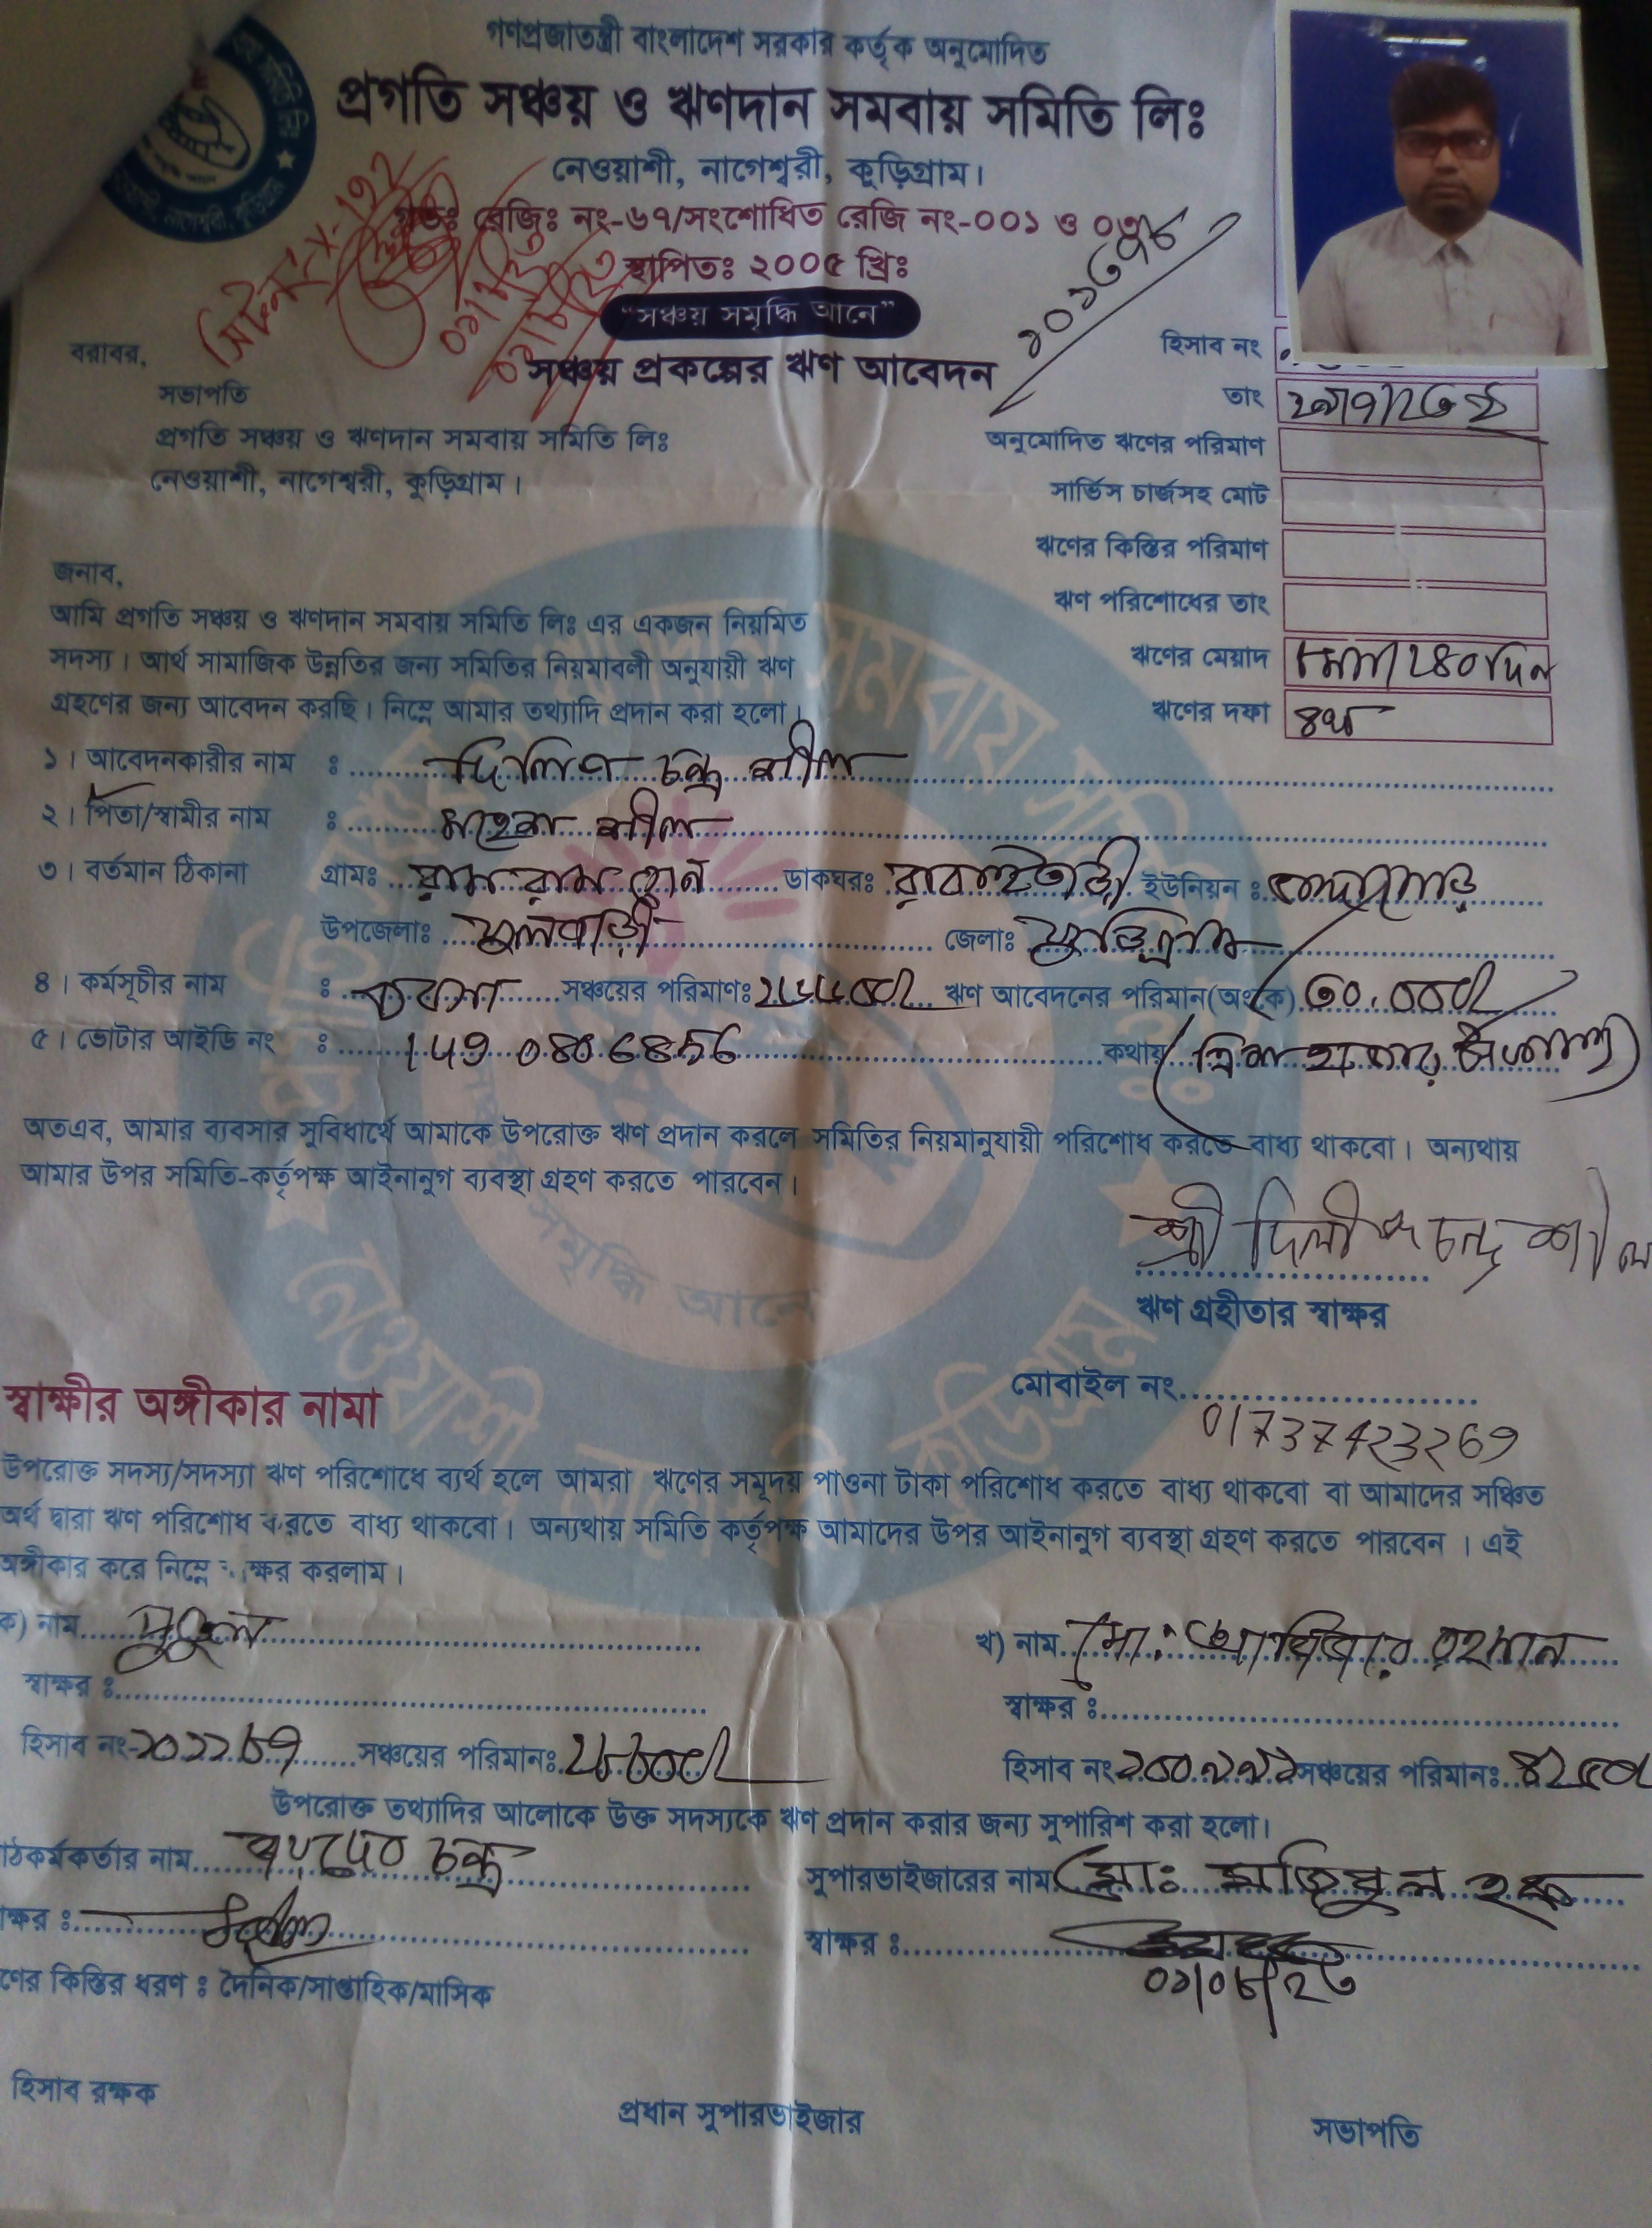 গণপ্রজাতন্ত্রী বাংলাদেশ সরকার কর্তৃক অনুমোদিত
প্রগতি সঞ্চয় ও ঋণদান সমবায় সমিতি লিঃ
নেওয়াশী, নাগেশ্বরী, কুড়িগ্রাম।
গভঃ রেজিঃ নং-৬৭/সংশোধিত রেজি নং-০০১ ও ০৩
স্থাপিতঃ ২০০৫ খ্রিঃ
“সঞ্চয় সমৃদ্ধি আনে”
সঞ্চয় প্রকল্পের ঋণ আবেদন
বরাবর,
সভাপতি
প্রগতি সঞ্চয় ও ঋণদান সমবায় সমিতি লিঃ
নেওয়াশী, নাগেশ্বরী, কুড়িগ্রাম।
হিসাব নং
তাং
অনুমোদিত ঋণের পরিমাণ
সার্ভিস চার্জসহ মোট
ঋণের কিস্তির পরিমাণ
ঋণ পরিশোধের তাং
ঋণের মেয়াদ ২৪০দিন
ঋণের দফা ৪র্থ
জনাব,
আমি প্রগতি সঞ্চয় ও ঋণদান সমবায় সমিতি লিঃ এর একজন নিয়মিত
সদস্য। আর্থ সামাজিক উন্নতির জন্য সমিতির নিয়মাবলী অনুযায়ী ঋণ
গ্রহণের জন্য আবেদন করছি। নিম্নে আমার তথ্যাদি প্রদান করা হলো।
১। আবেদনকারীর নাম : দিলিপ চন্দ্র শীল
২। পিতা/স্বামীর নাম : মহেশ শীল
৩। বর্তমান ঠিকানা গ্রামঃ ডাকঘরঃ রাবাইতাড়ী ইউনিয়ন :
উপজেলাঃ ফুলবাড়ী জেলাঃ কুড়িগ্রাম
৪। কর্মসূচীর নাম : ব্যবসা সঞ্চয়ের পরিমাণঃ ঋণ আবেদনের পরিমান(অংকে) ৩০,০০০/
৫। ভোটার আইডি নং : কথায় (ত্রিশ হাজার টাকা মাত্র)
অতএব, আমার ব্যবসার সুবিধার্থে আমাকে উপরোক্ত ঋণ প্রদান করলে সমিতির নিয়মানুযায়ী পরিশোধ করতে বাধ্য থাকবো। অন্যথায়
আমার উপর সমিতি-কর্তৃপক্ষ আইনানুগ ব্যবস্থা গ্রহণ করতে পারবেন।
শ্রী দিলীপ চন্দ্র শীল
ঋণ গ্রহীতার স্বাক্ষর
মোবাইল নং
01737423269
স্বাক্ষীর অঙ্গীকার নামা
উপরোক্ত সদস্য/সদস্যা ঋণ পরিশোধে ব্যর্থ হলে আমরা ঋণের সমূদয় পাওনা টাকা পরিশোধ করতে বাধ্য থাকবো বা আমাদের সঞ্চিত
অর্থ দ্বারা ঋণ পরিশোধ করতে বাধ্য থাকবো। অন্যথায় সমিতি কর্তৃপক্ষ আমাদের উপর আইনানুগ ব্যবস্থা গ্রহণ করতে পারবেন। এই
অঙ্গীকার করে নিম্নে ক্ষর করলাম।
ক) নাম
খ) নাম মোঃ রহমান
স্বাক্ষর :
স্বাক্ষর :
হিসাব নং- সঞ্চয়ের পরিমানঃ
হিসাব নং সঞ্চয়ের পরিমানঃ
উপরোক্ত তথ্যাদির আলোকে উক্ত সদস্যকে ঋণ প্রদান করার জন্য সুপারিশ করা হলো।
ঠকর্মকর্তার নাম চন্দ্র
সুপারভাইজারের নাম মোঃ হক
ক্ষর :
স্বাক্ষর :
০১/০৮/২৩
ণের কিস্তির ধরণ : দৈনিক/সাপ্তাহিক/মাসিক
হিসাব রক্ষক
প্রধান সুপারভাইজার
সভাপতি